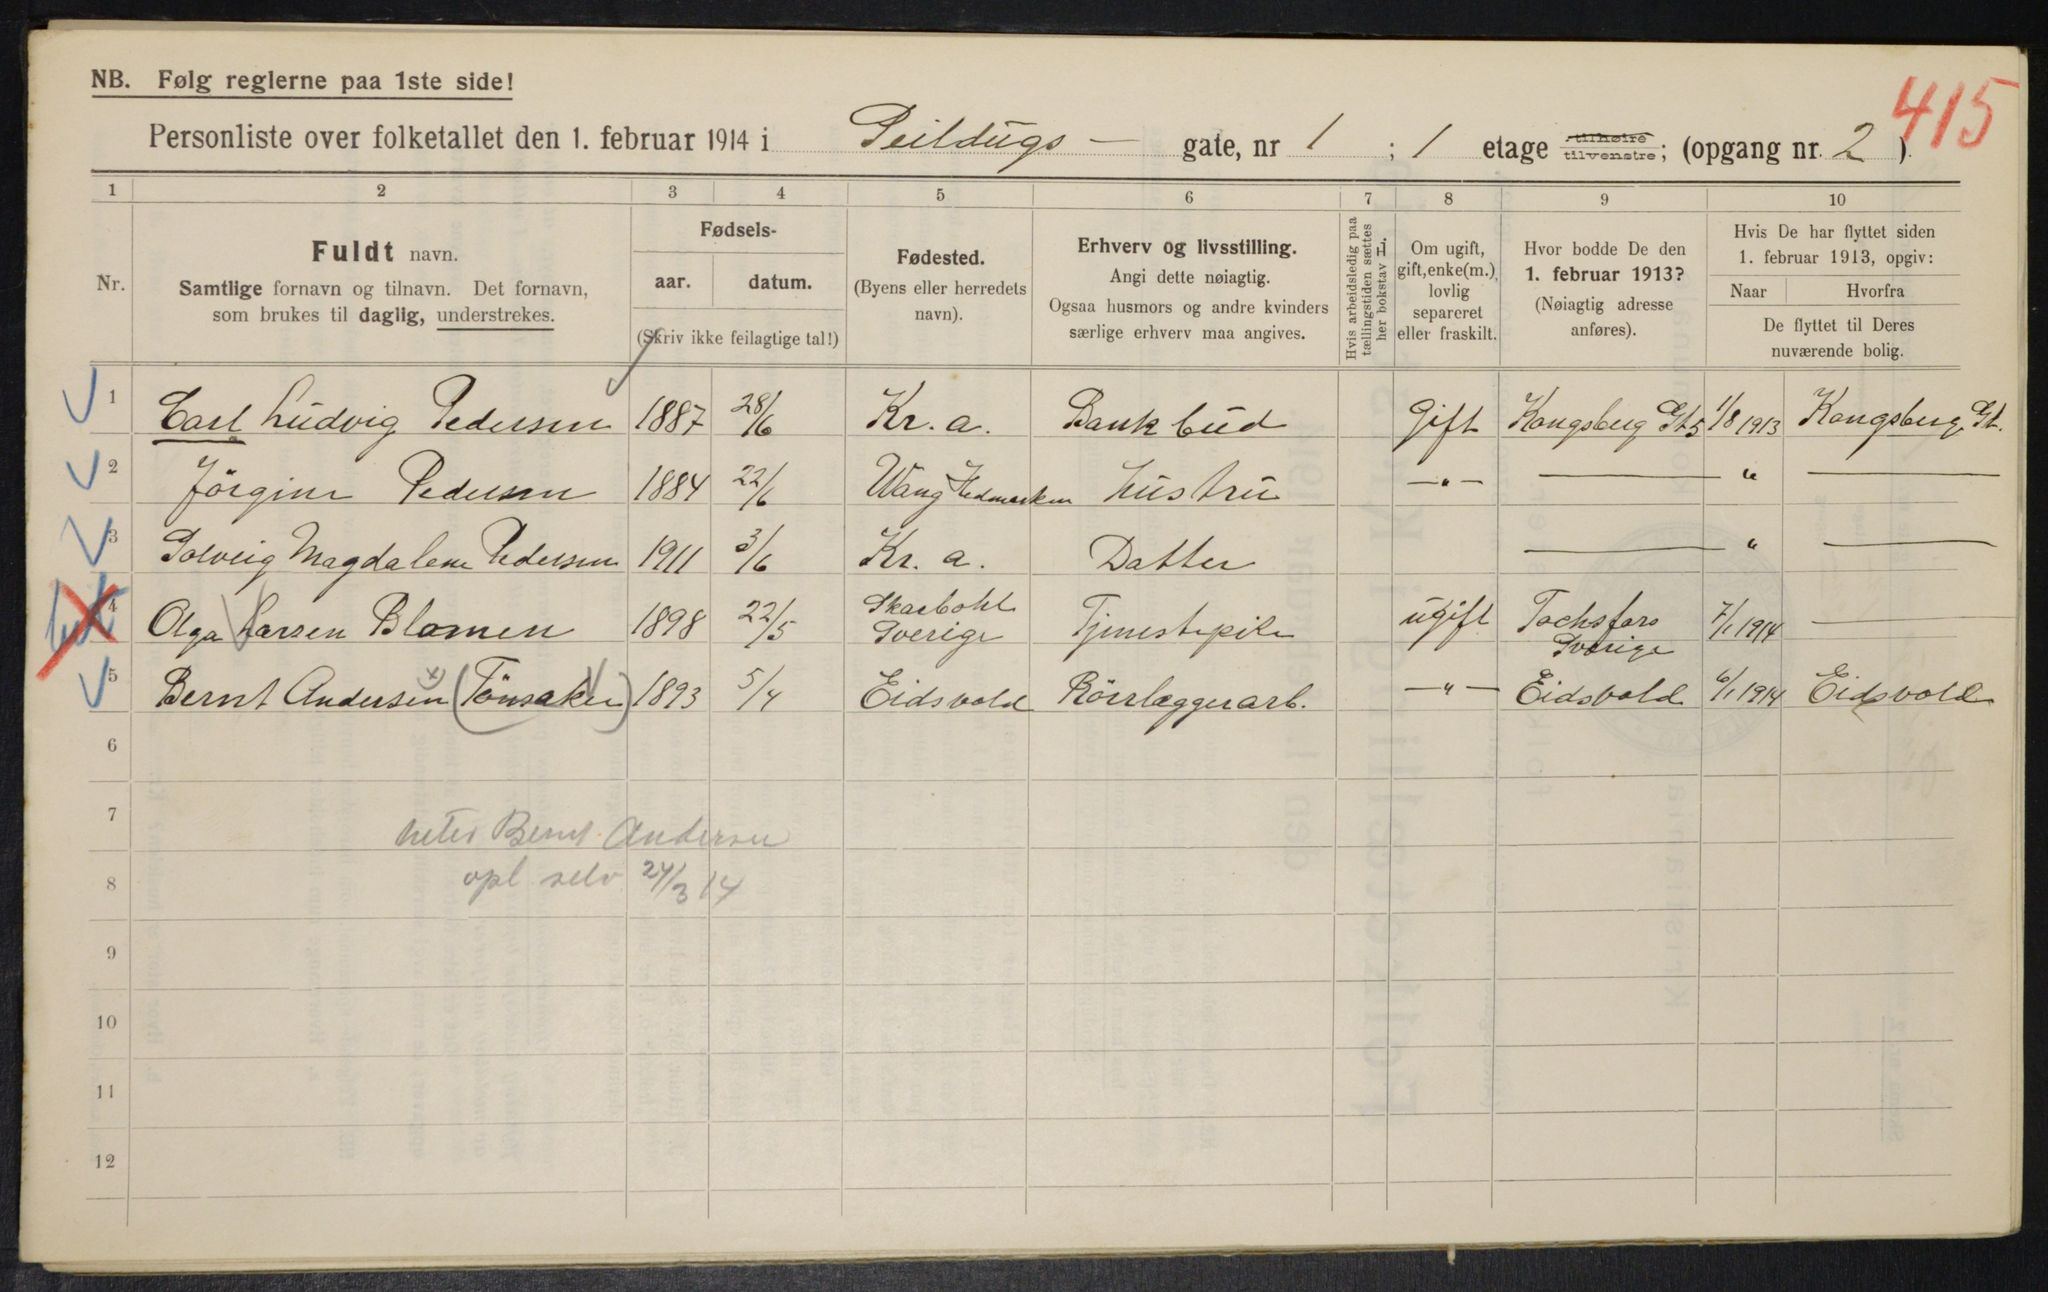 415
NB. Følg reglerne paa 1ste side!
Personliste over folketallet den 1. februar 1914 i Seildugs- gate, nr 1 ; 1 etage tilhøire tilvenstre; (opgang nr. 2 ).
1 2 3 4 5 6 7 8 9 10
Nr.
Fuldt navn.
Samtlige fornavn og tilnavn. Det fornavn,
som brukes til daglig, understrekes.
Fødsels-
aar. datum.
(Skriv ikke feilagtige tal!)
Fødested.
(Byens eller herredets
navn).
Erhverv og livsstilling.
Angi dette nøiagtig.
Ogsaa husmors og andre kvinders
særlige erhverv maa angives.
Hvis arbeidsledig paa
tællingstiden sættes
her bokstav L
Om ugift,
gift, enke(m.),
lovlig
separeret
eller fraskilt.
Hvor bodde De den
1. februar 1913?
(Nøiagtig adresse
anføres).
Hvis De har flyttet siden
1. februar 1913, opgiv:
Naar Hvorfra
De flyttet til Deres
nuværende bolig.
1 Carl Ludvig Pedersen 1887 28/6 Kr. a. Bankbud Gift Kongsberg Gt 5 1/8 1913 Kongsberg Gt.
2 Jörgine Pedersen 1884 22/6 Wang Hedmarken Hustru —"— — " —
3 Solveig Magdalene Pedersen 1911 3/6 Kr. a. Datter — " —
4 Olga Larsen Blomen 1898 22/5 Skarbohl Sverige Tjenestepike ugift Tocksfors Sverige 7/1 1914 —
5 Bernt Andersen x) (Tönsaker) 1893 5/4 Eidsvold Rörlæggerarb. —"— Eidsvold 6/1 1914 Eidsvold
6
7
heter Bernt Andersen
8
opl selv 24/3 14
9
10
11
12